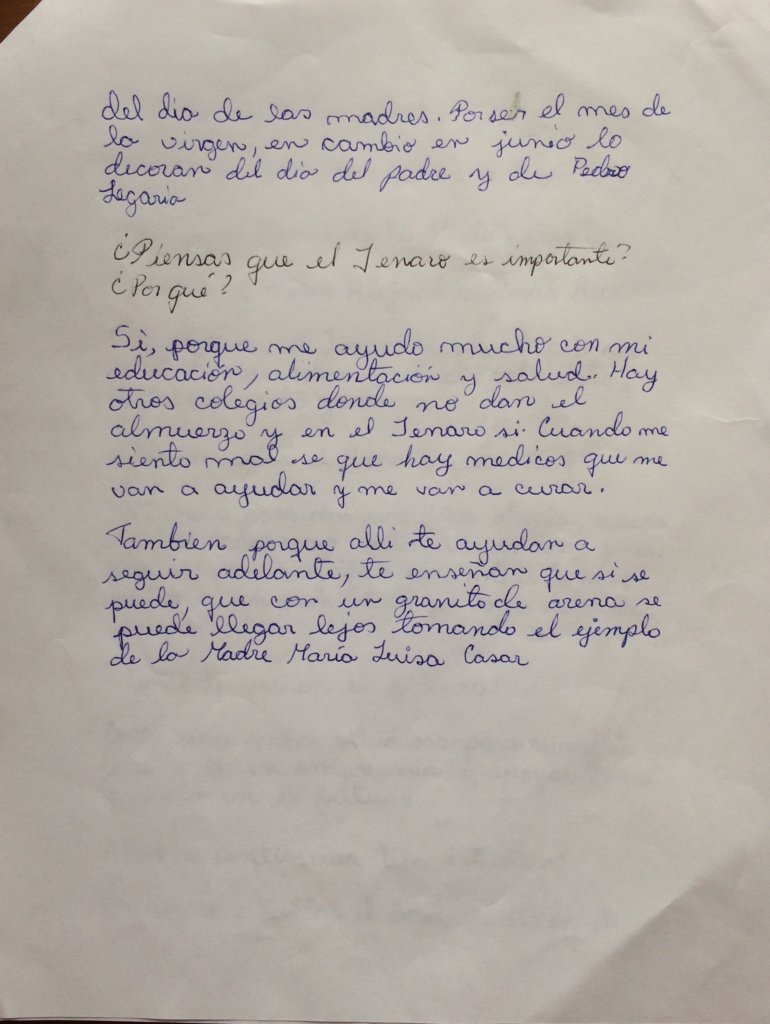 del dia de las madres. Por ser el mes de
la virgen, en cambio en junio lo
decoran del dia del padre y de Pedro
Legaria
¿Piensas que el Tenaro es importante?
¿Por qué?
Si, porque me ayudo mucho con mi
educación, alimentación y salud. Hay
otros colegios donde no dan el
almuerzo y en el Tenaro si. Cuando me
siento mal se que hay medicos que me
van a ayudar y me van a curar.
Tambien porque alli te ayudan a
seguir adelante, te enseñan que si se
puede, que con un granito de arena se
puede llegar lejos tomando el ejemplo
de la Madre María Luisa Casar